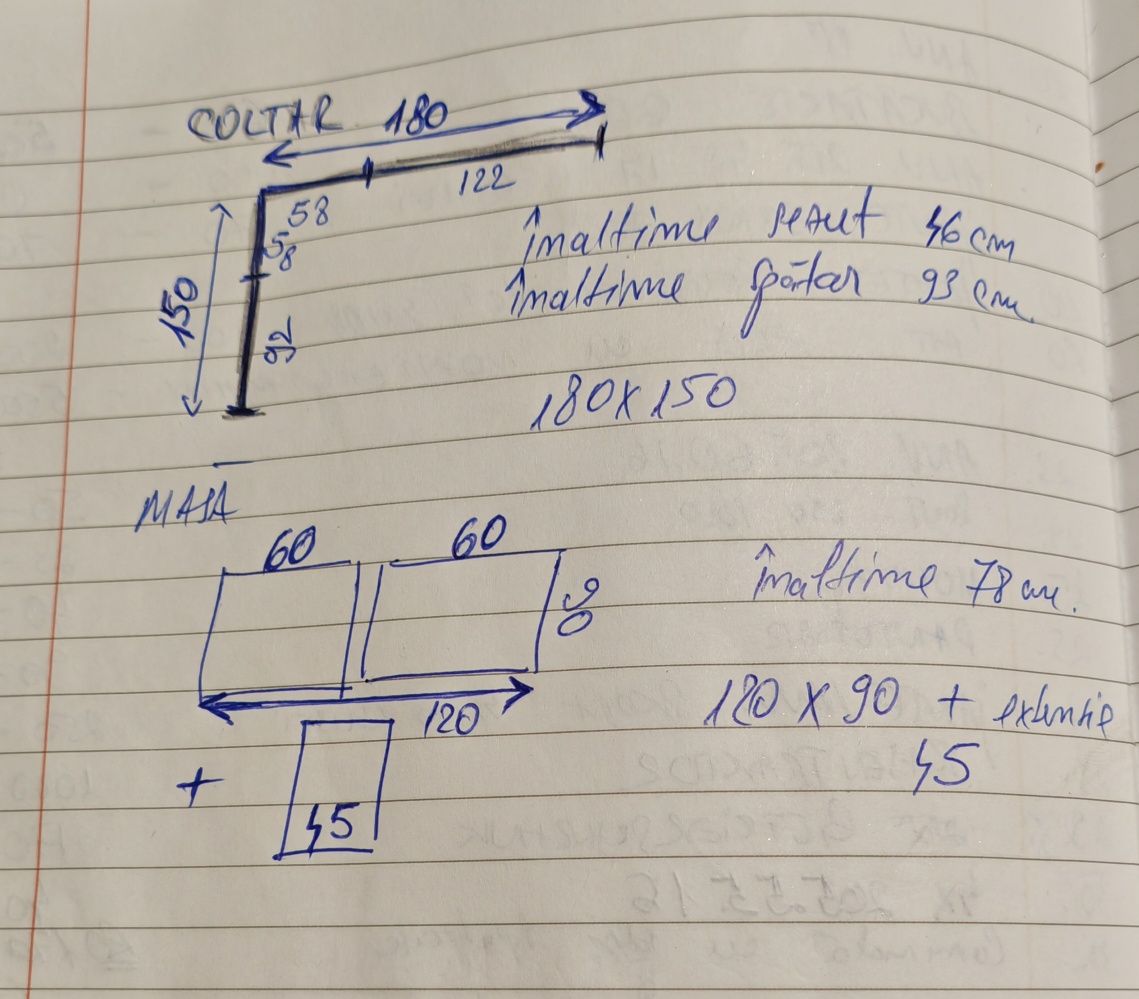 COLTAR 180
122
58
58
150
92
înaltime sezut 46 cm
înaltime spătar 93 cm.
180x150
MASA
60 60
90
înaltime 78 cm.
120
120 x 90 + extensie
45
+
45